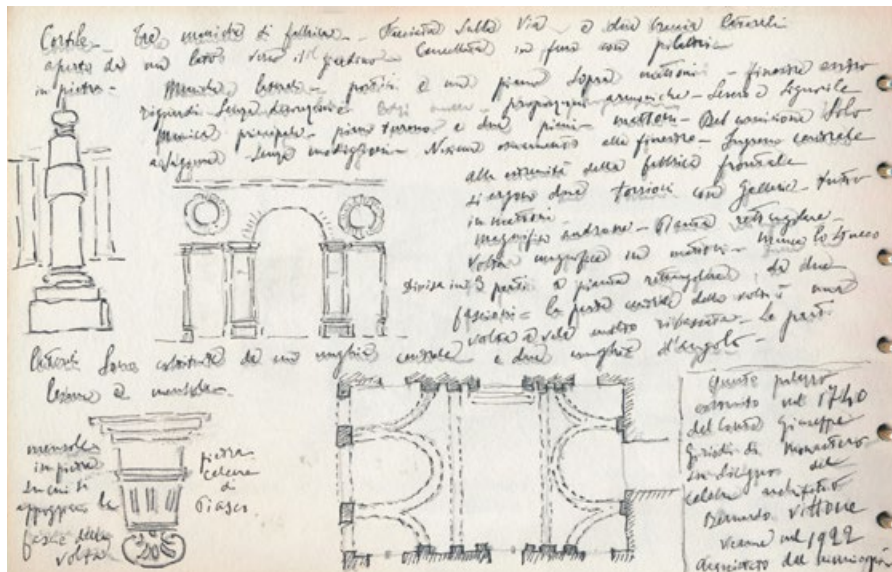 Cortile - Tre maniche di fabbrica - Facciata sulla Via - e due braccia laterali
aperto da un lato verso il giardino Cancellata in ferro con pilastri
in pietra - Manica laterale - portici e un piano sopra mattoni - finestre
riquadri senza decorazioni - proporzioni armoniche - Severo e Signorile
Manica principale - piano terreno e due piani - mattoni - Bel cornicione Solo
aggiunto senza modiglioni - Nessun ornamento alle finestre - Ingresso centrale
alle estremità della fabbrica frontale
si ergono due torrioni con gallerie - tutto
in mattoni -
Magnifico androne - Pianta rettangolare -
Volta magnifica in mattoni - manca lo stucco
divisa in 3 parti a pianta rettangolare, da due
fascioni = la parte centrale della volta è una
volta a vela molto ribassata - Le parti
laterali sono costituite da una unghia centrale e due unghie d'angolo -
lesene a mensola -
mensole
in pietra
su cui si
appoggiano le
fasce della
volta
pietra
calcare
di
Piasco
Questo palazzo
costruito nel 1740
dal Conte Giuseppe
di Monastero
su disegno del
celebre architetto
Bernardo Vittone
Venne nel 1922
acquistato dal municipio